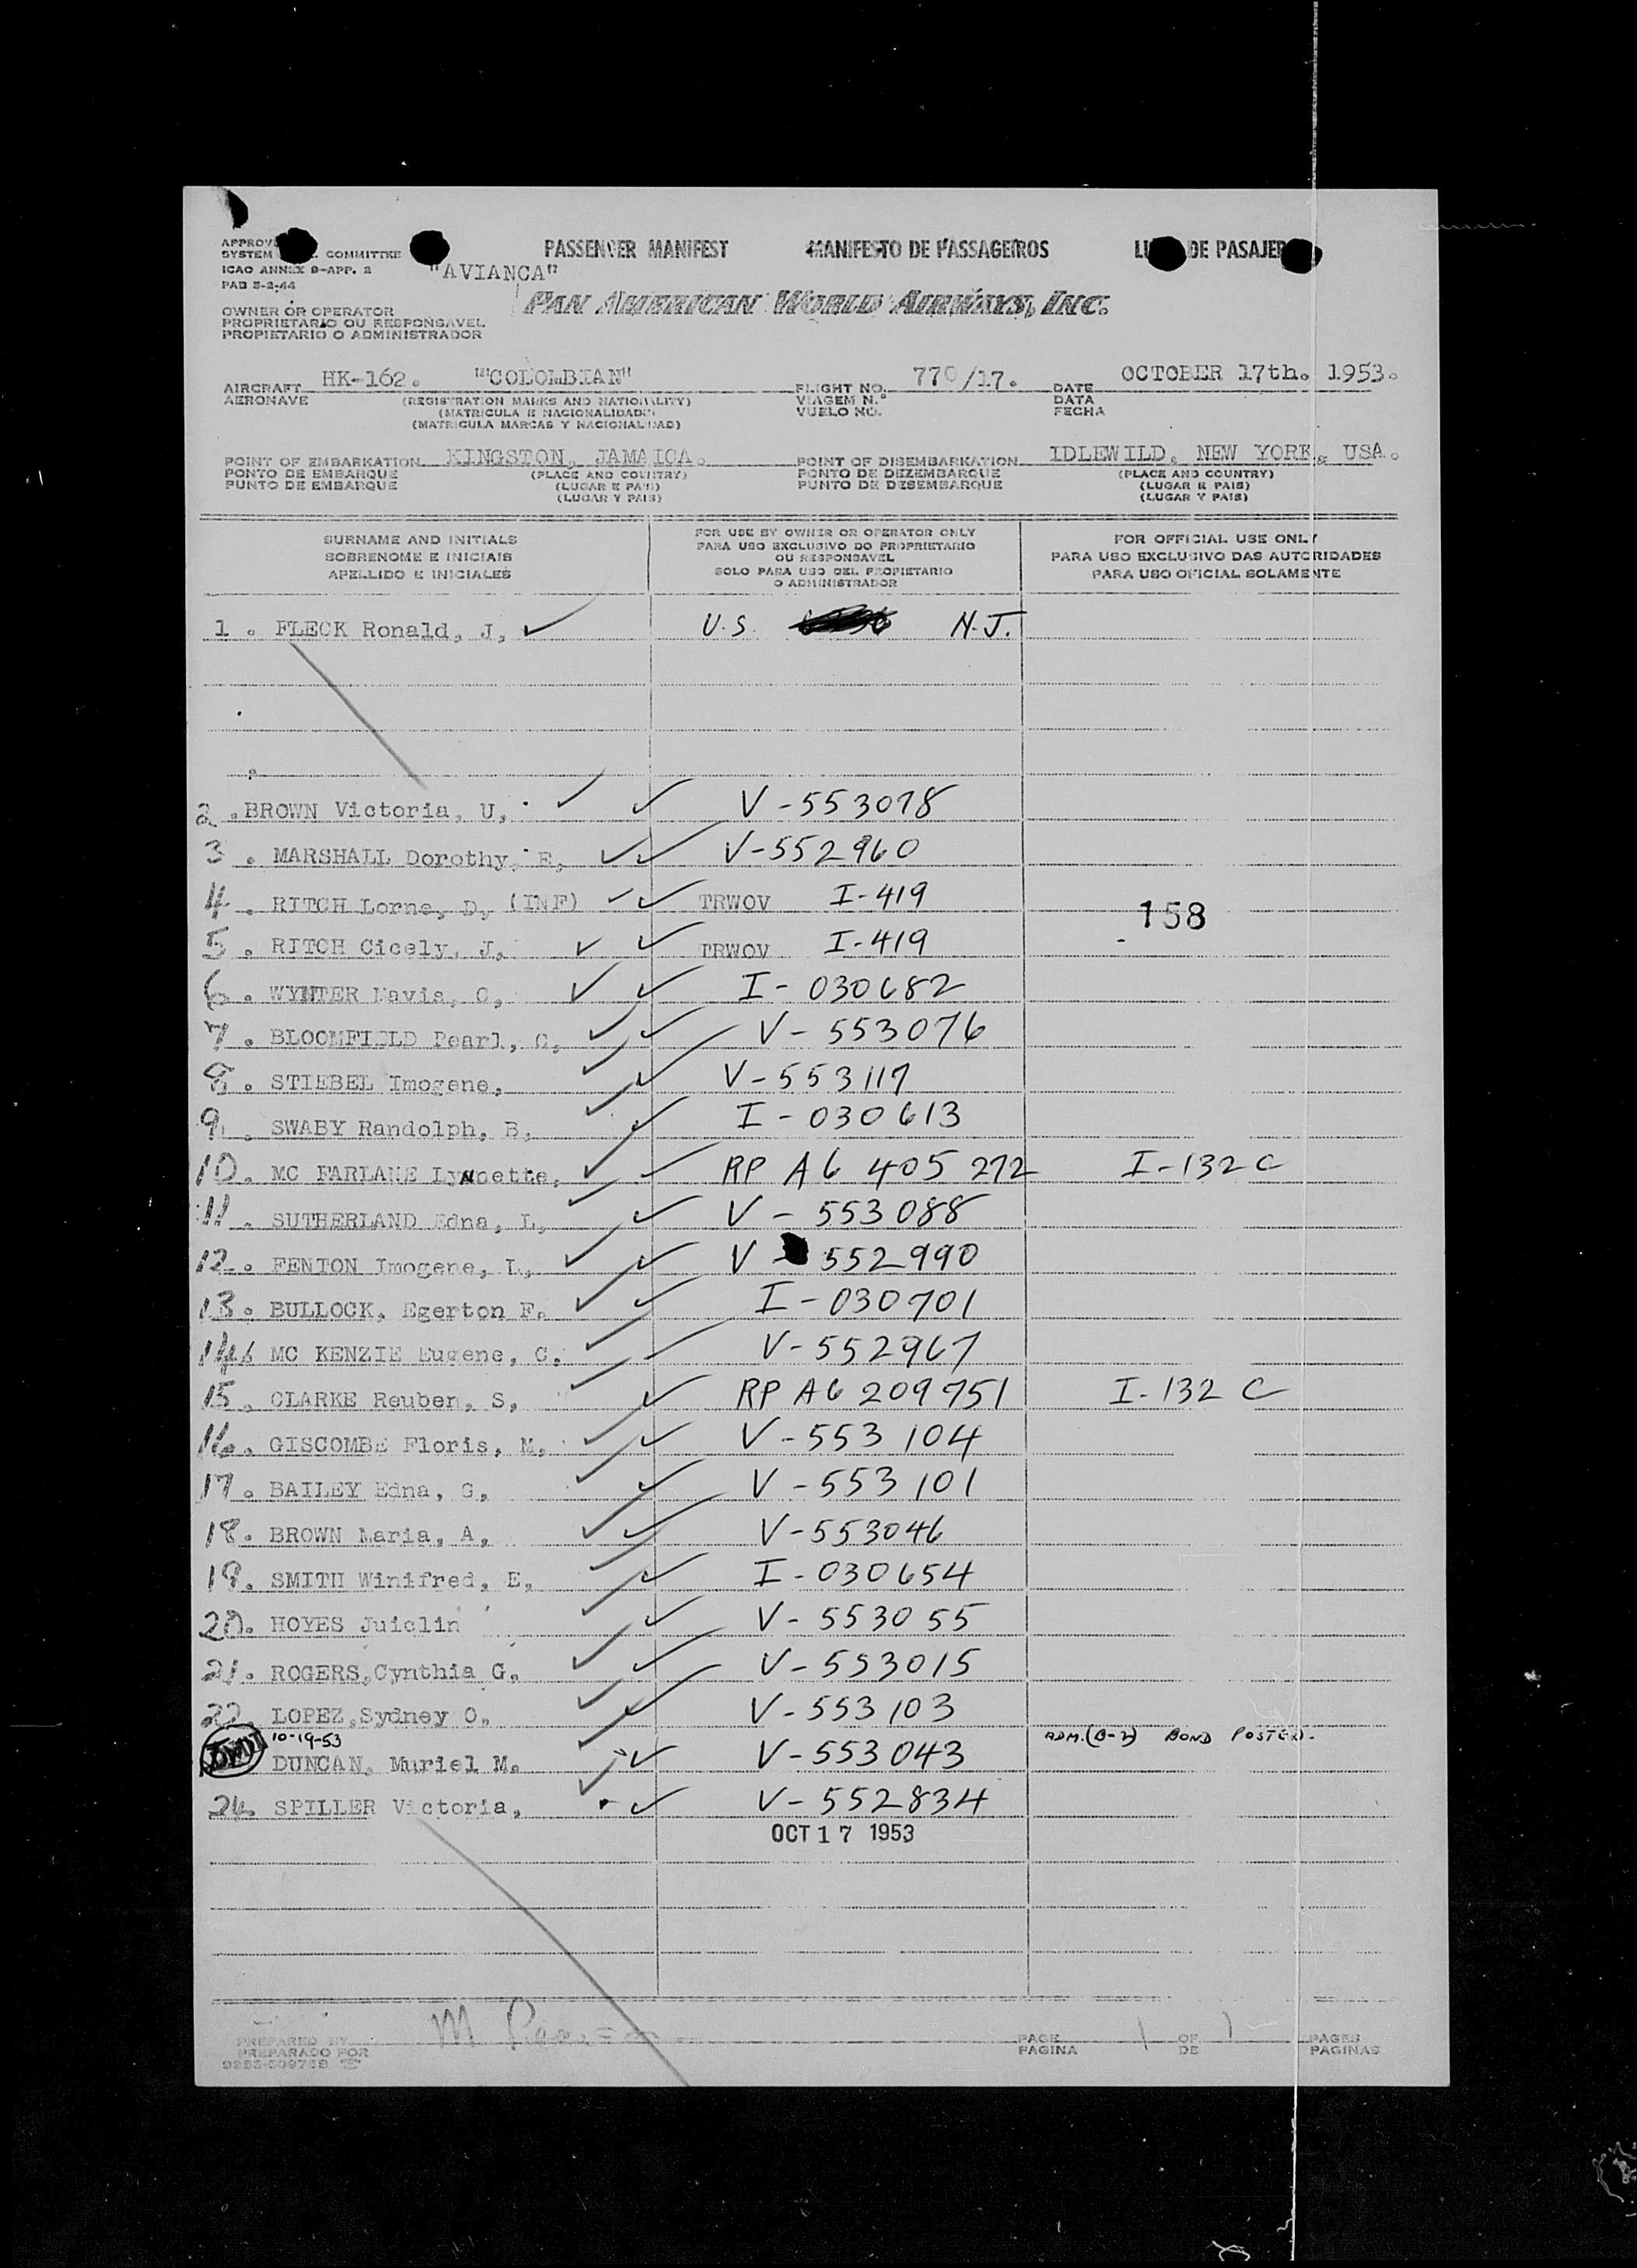 PASSENGER MANIFEST MANIFESTO DE PASSAGEIROS DE PASAJER
SYSTEM COMMITTEE
ICAO ANNEX 9-APP. 2
PAD 5-2-44
"AVIANCA"
PAN AMERICAN WORLD AIRWAYS, INC.
OWNER OR OPERATOR
PROPRIETARIO OU RESPONSAVEL
PROPIETARIO O ADMINISTRADOR
AIRCRAFT HK-162. "COLOMBIAN" FLIGHT NO. 770/17. DATE OCTOBER 17th. 1953.
AERONAVE (REGISTRATION MARKS AND NATIONALITY) VIAGEM N.º DATA
(MATRICULA E NACIONALIDADE) VUELO NO. FECHA
(MATRICULA MARCAS Y NACIONALIDAD)
POINT OF EMBARKATION KINGSTON, JAMAICA. POINT OF DISEMBARKATION IDLEWILD, NEW YORK, USA.
PONTO DE EMBARQUE (PLACE AND COUNTRY) PONTO DE DEZEMBARQUE (PLACE AND COUNTRY)
PUNTO DE EMBARQUE (LUGAR E PAIS) PUNTO DE DESEMBARQUE (LUGAR E PAIS)
(LUGAR Y PAIS) (LUGAR Y PAIS)
SURNAME AND INITIALS FOR USE BY OWNER OR OPERATOR ONLY FOR OFFICIAL USE ONLY
SOBRENOME E INICIAIS PARA USO EXCLUSIVO DO PROPRIETARIO PARA USO EXCLUSIVO DAS AUTORIDADES
OU RESPONSAVEL
APELLIDO E INICIALES SOLO PARA USO DEL PROPIETARIO PARA USO OFICIAL SOLAMENTE
O ADMINISTRADOR
1. FLECK Ronald, J, U.S. N.J.
2. BROWN Victoria, U, V-553078
3. MARSHALL Dorothy, E, V-552960
4. RITCH Lorne, D, (INF) TRWOV I-419
158
5. RITCH Cicely, J, TRWOV I-419
6. WYNTER Mavis, O, I-030682
7. BLOOMFIELD Pearl, C, V-553076
8. STIEBEL Imogene, V-553117
9. SWABY Randolph, B, I-030613
10. MC FARLANE Lynnette, RP A6 405 272 I-132 C
11. SUTHERLAND Edna, L, V-553088
12. FENTON Imogene, L, V-552990
13. BULLOCK, Egerton F. I-030701
14. MC KENZIE Eugene, C. V-552967
15. CLARKE Reuben, S, RP A6 209 751 I-132 C
16. GISCOMBE Floris, M, V-553104
17. BAILEY Edna, G, V-553101
18. BROWN Maria, A, V-553046
19. SMITH Winifred, E, I-030654
20. HOYES Juiclin V-553055
21. ROGERS, Cynthia G. V-553015
22. LOPEZ, Sydney O. V-553103
10-19-53 ADM. (B-2) BOND POSTED.
DUNCAN, Muriel M. V-553043
24. SPILLER Victoria, V-552834
OCT 17 1953
PREPARED BY M PAGE 1 OF 1 PAGES
PREPARADO POR PAGINA DE PAGINAS